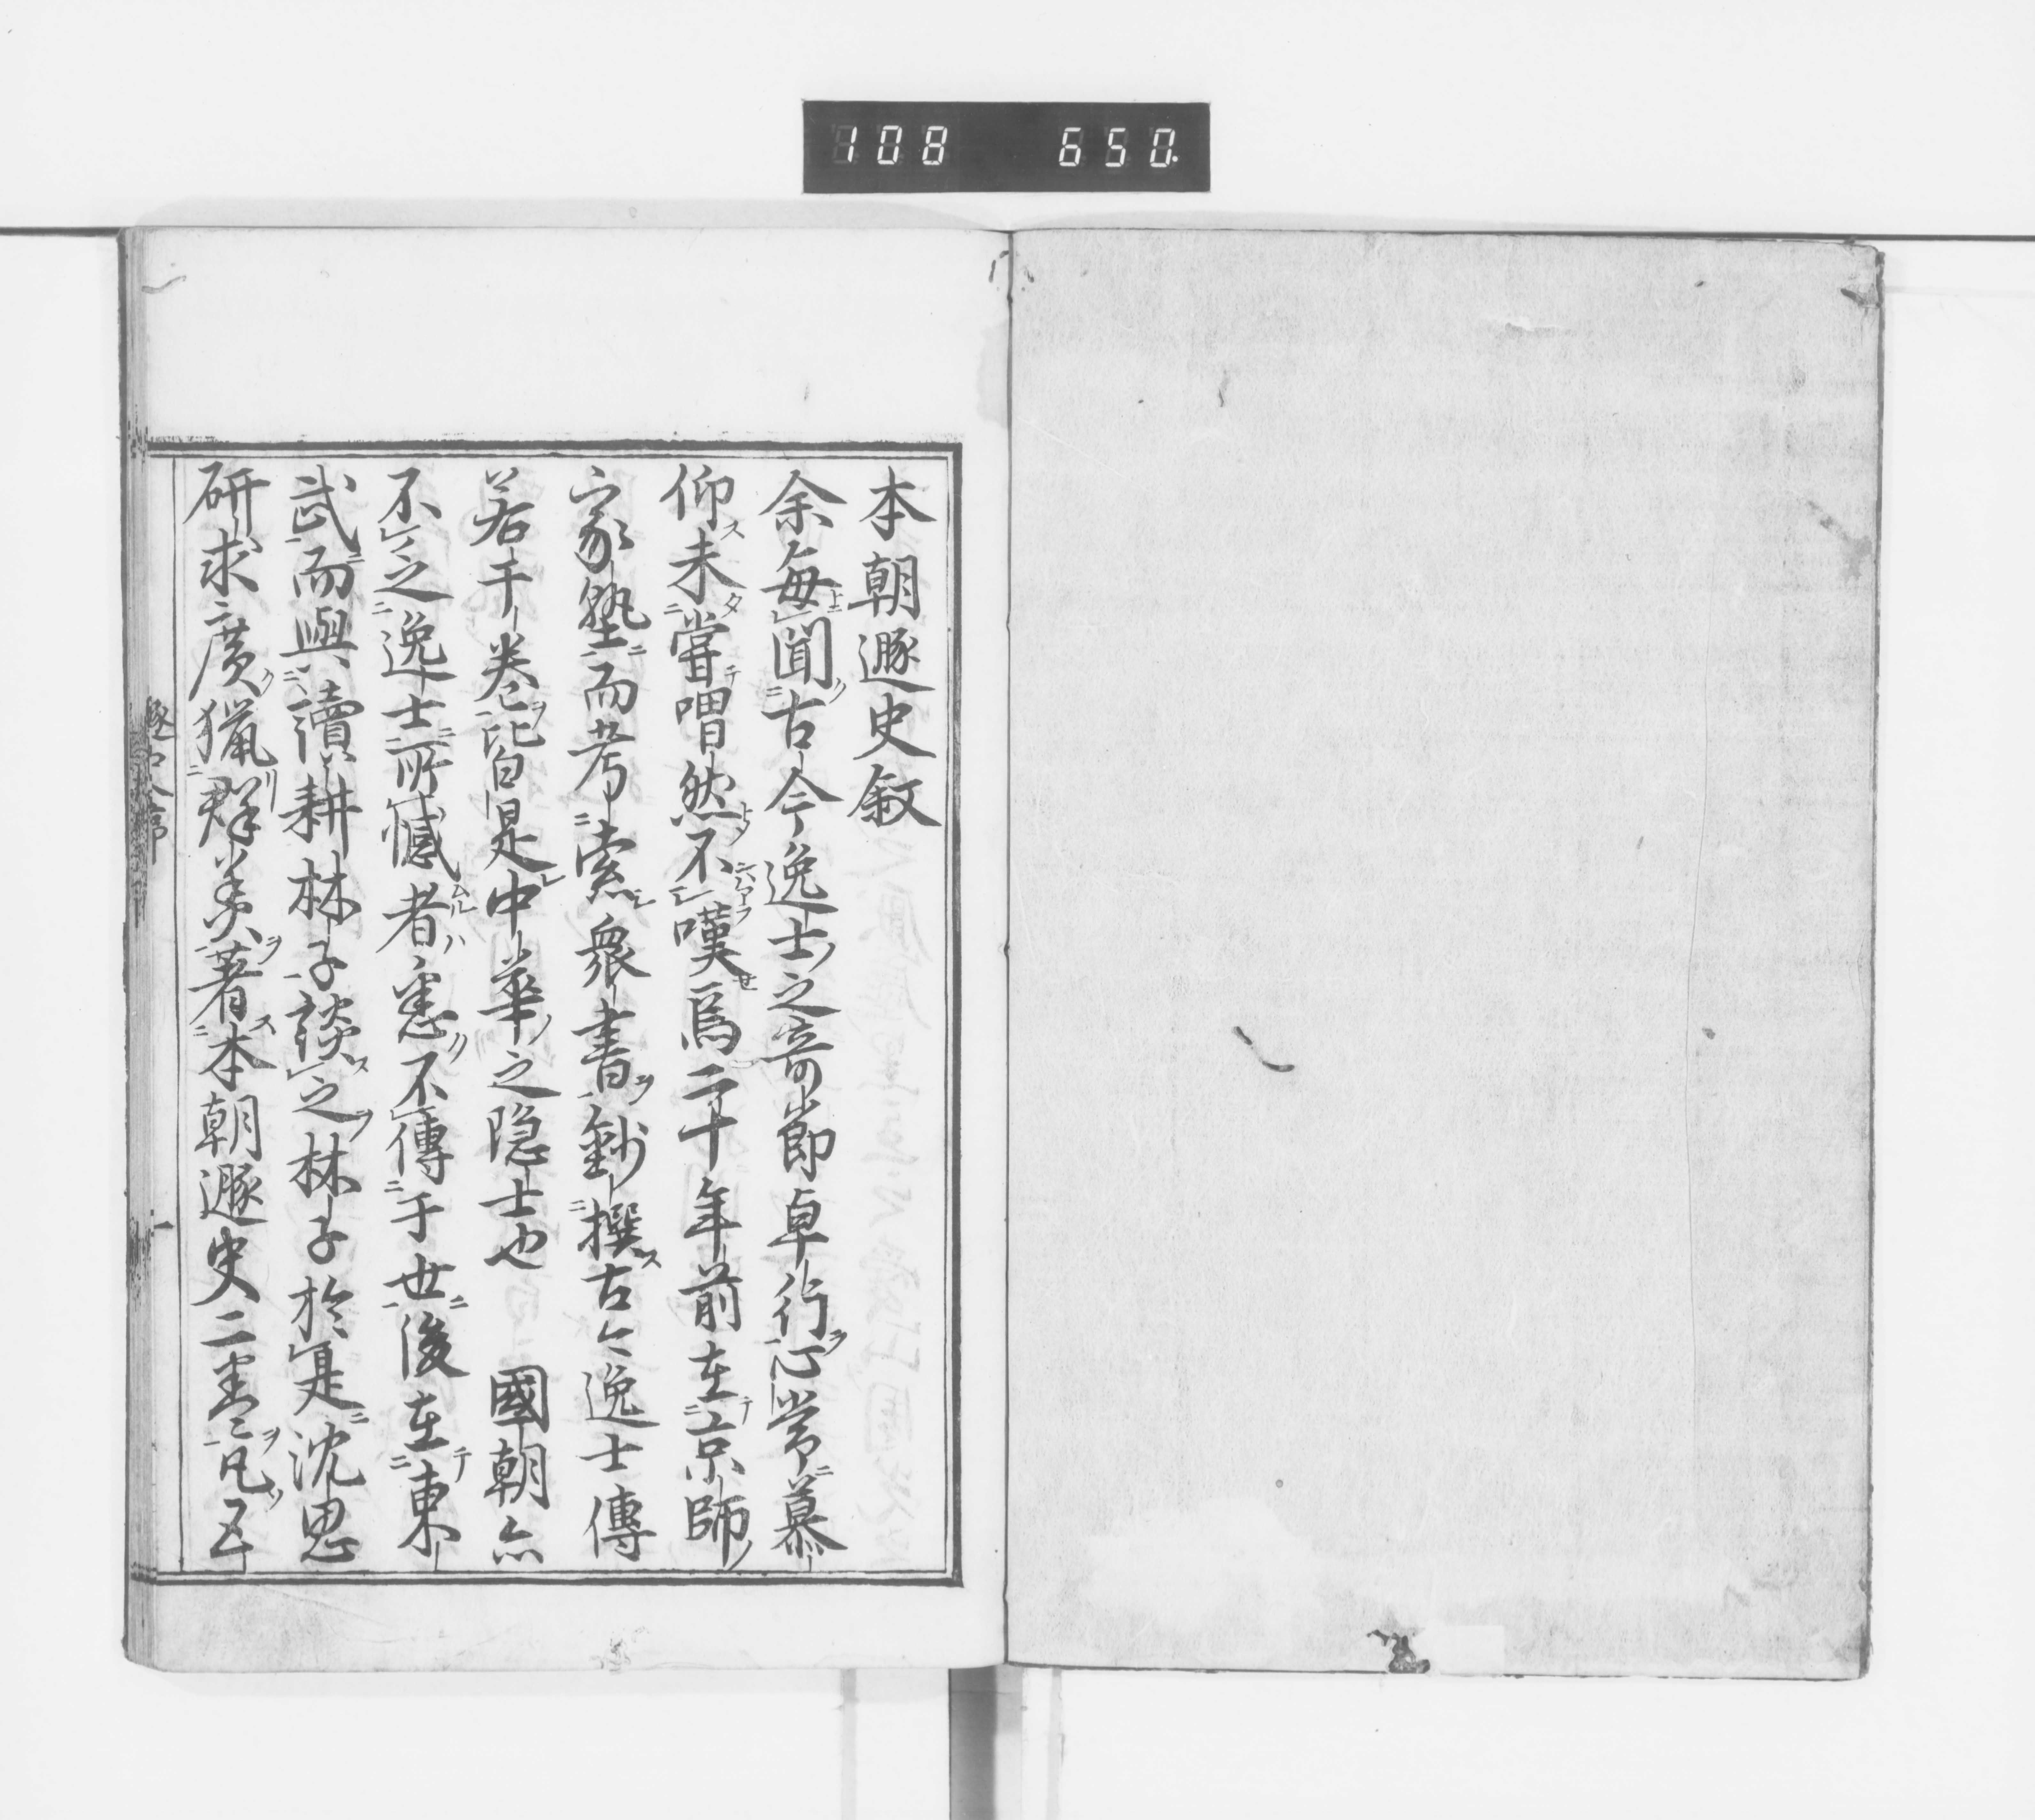 108 650.
本朝遯史敘
余毎聞古今逸士之奇節卓行心常慕
仰未嘗喟然不嘆焉二十年前在京師
家塾而考索衆書鈔撰古今逸士傳
若干卷皆是中華之隠士也 國朝亦
不之逸士所憾者悉不傳于世後在東
武而與讀耕林子談之林子於是沈思
研求廣猟群美著本朝遯史二卷凡五